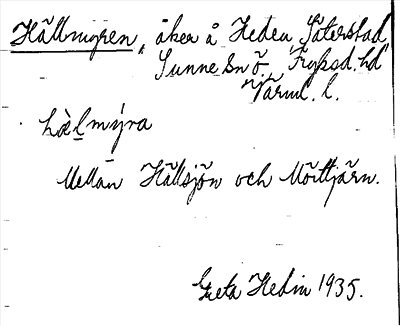 Hällmyren, åker å Hedeu Säterstad
Sunne sn ö. Fryksd. hd
Värml. l.
hæ̀l mýra
Mellan Hällsjön och Mörttjärn.
Greta Hedin 1935.